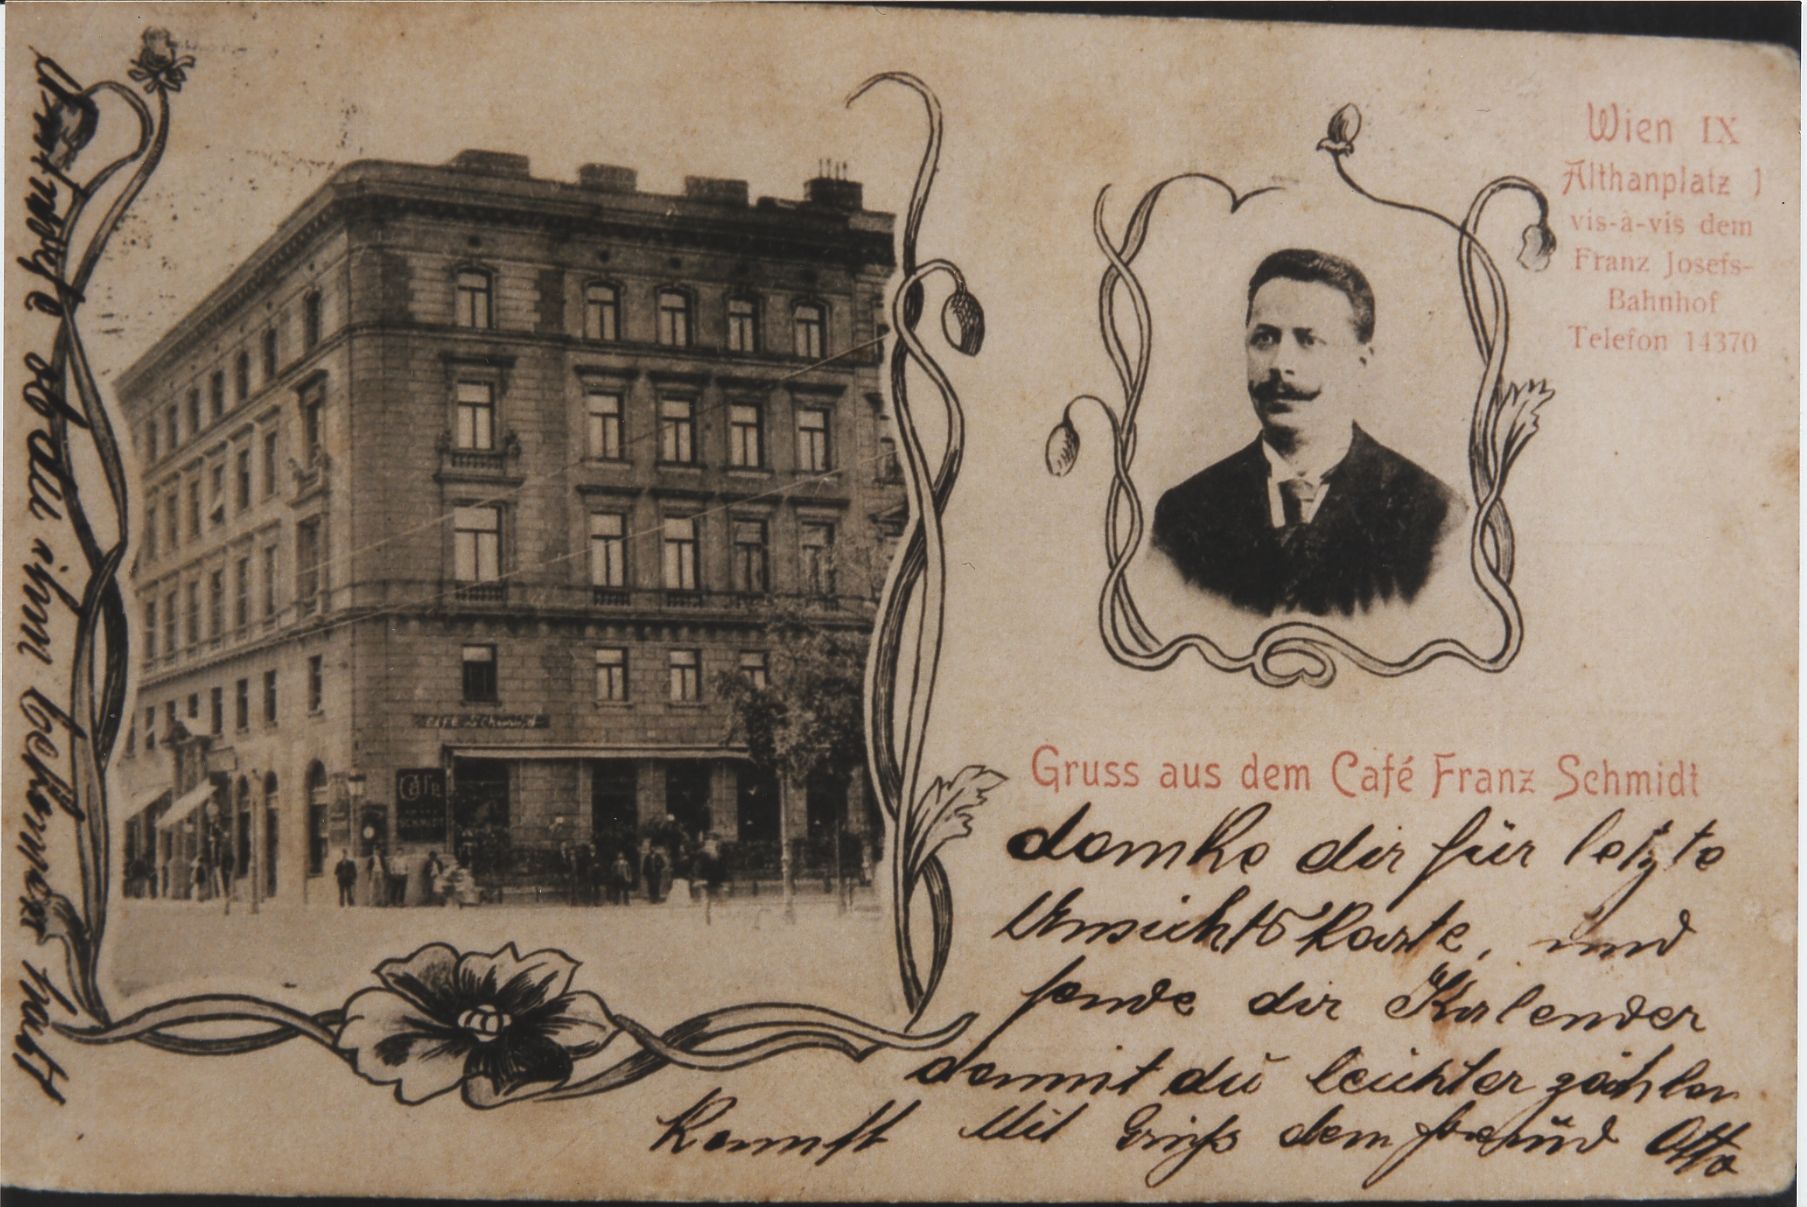 Wien IX
Althanplatz 1
vis-à-vis dem
Franz Josefs-
Bahnhof
Telefon 14370
Café Schmidt
Café
SCHMIDT
Gruss aus dem Café Franz Schmidt
danke dir für letzte
Ansichtskarte, und
sende dir Kalender
damit du leichter zählen
kannst Mit Gruß dein freund Otto
Antworte ob du ihn bekommen hast